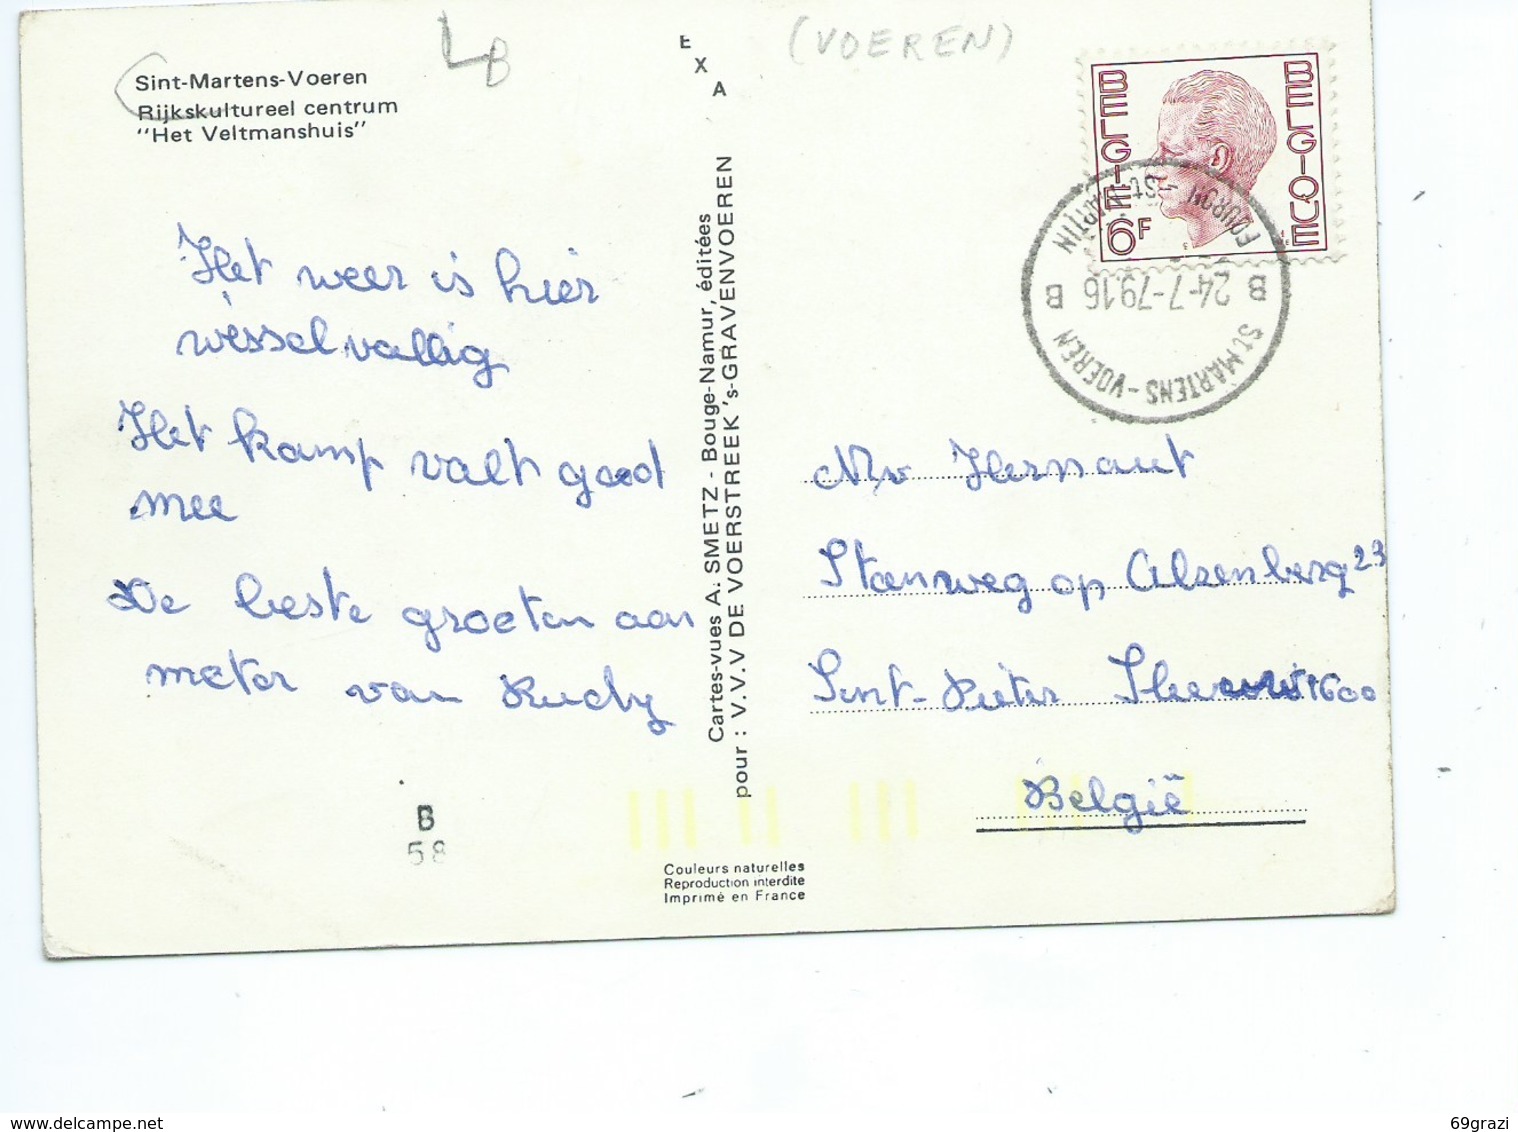 Sint-Martens-Voeren
Rijkskultureel centrum
"Het Veltmanshuis"
LB
E
X
A
(VOEREN)
BELGIE
BELGIQUE
6F
FOURON-St. MARTIN
B 24-7-79.16 B
St. MARTENS-VOEREN
Het weer is hier
wisselvallig
Het kamp valt goed
mee
De beste groeten aan
meter van Rudy
Cartes-vues A. SMETZ - Bouge-Namur, éditées
pour : V.V.V DE VOERSTREEK 's-GRAVENVOEREN
Mv Hernaut
op Alsenberg 23
Sint-Pieter 1600
België
B
58
Couleurs naturelles
Reproduction interdite
Imprimé en France
69grazi